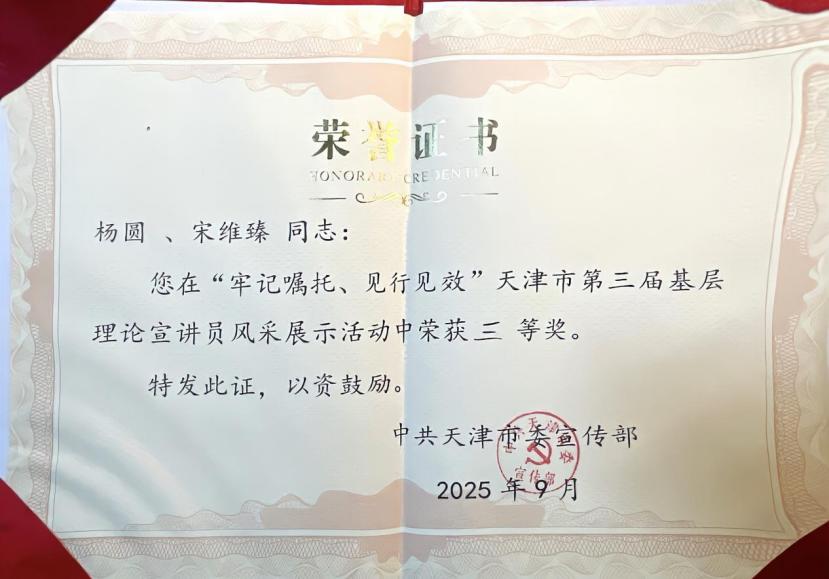 荣誉证书
HONORARY CREDENTIAL
杨圆 、宋维臻 同志：
您在“牢记嘱托、见行见效”天津市第三届基层
理论宣讲员风采展示活动中荣获 三 等奖。
特发此证，以资鼓励。
中共天津市委宣传部
中共天津市委
宣传部
2025 年 9 月